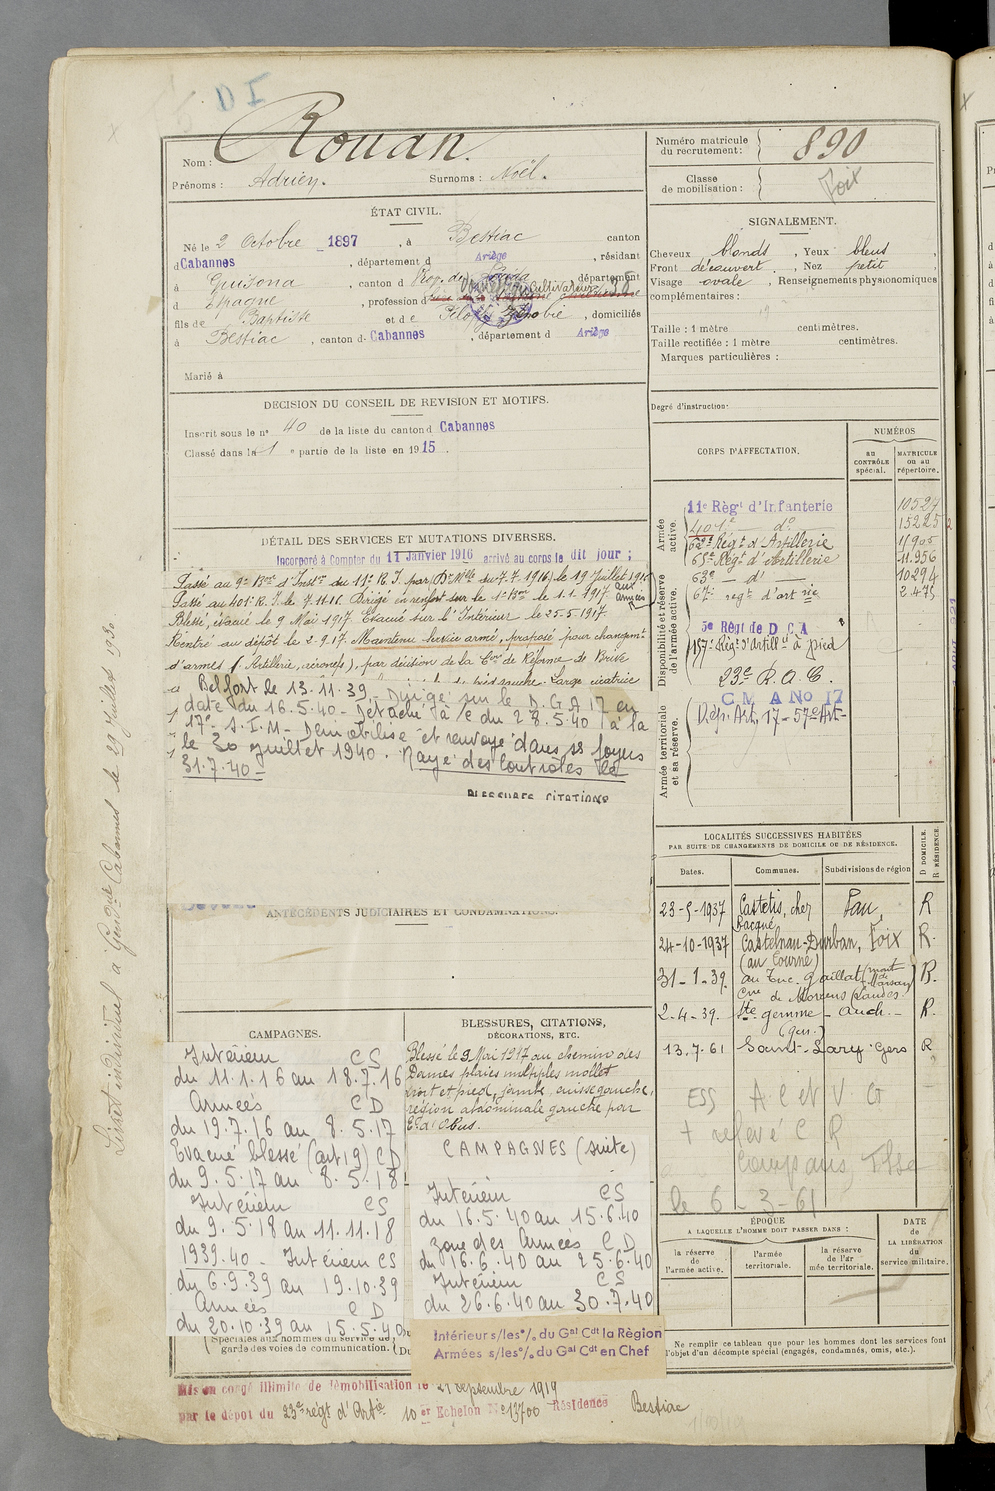 D I
Nom : Rouan.
Prénoms : Adrien. Surnoms : Noël.
Numéro matricule du recrutement : 890
Classe de mobilisation :
Foix
ÉTAT CIVIL.
Né le 2 Octobre 1897, à Bestiac canton
d Cabannes, département d Ariège, résidant
à Guisona, canton d département
d Espagne, profession d cultivateur
fils de Baptiste et de Zénobie, domiciliés
à Bestiac, canton d Cabannes, département d Ariège
Marié à
SIGNALEMENT.
Cheveux blonds, Yeux bleus,
Front découvert, Nez petit,
Visage ovale, Renseignements physionomiques
complémentaires :
Taille : 1 mètre centimètres.
Taille rectifiée : 1 mètre centimètres.
Marques particulières :
Degré d'instruction :
DECISION DU CONSEIL DE REVISION ET MOTIFS.
Inscrit sous le n° 40 de la liste du canton d Cabannes
Classé dans la 1 e partie de la liste en 1915.
DÉTAIL DES SERVICES ET MUTATIONS DIVERSES.
Incorporé à Compter du 11 Janvier 1916 arrivé au corps le dit jour ;
Passé au 9e Bon d'Inston du 11e R.I. par (Don Mlle du 7.7.1916) le 19 Juillet 1916
Passé au 401e R.I. le 7.11.16. Dirigé en renfort sur le 1e Bon le 1.1.1917. aux armées
Blessé, évacué le 9 Mai 1917. Evacué sur l'Intérieur le 25-5-1917
Rentré au dépôt le 2.9.17. Maintenu service armé, proposé pour changemt
d'armes (Artillerie, aéronefs), par décision de la Con de Réforme de Brive
Large cicatrice
Belfort le 13.11.39 - Dirigé sur le D.G.A 17 en
date du 16.5.40 - Détaché à/c du 28.5.40 à la
17e S.I.M - Démobilisé et renvoyé dans ses foyers
le 30 Juillet 1940. Rayé des contrôles le
31.7.40 -
BLESSURES CITATIONS
CORPS D'AFFECTATION.
NUMÉROS
au CONTRÔLE spécial.
MATRICULE ou au répertoire.
Armée active.
11e Régt d'Infanterie 10527
401e do 15225
62e Régt d'Artillerie 11905
Disponibilité et réserve de l'armée active.
65e Régt d'Artillerie 11.956
63e - d° 10294
67e regt d'artie 2.475
5e Régt de D C A
157e Régt d'Artillie à pied
23e R.A.C.
Armée territoriale et sa réserve.
C M A No 17
Dép. Art. 17 - 57e Art -
ANTÉCÉDENTS JUDICIAIRES ET CONDAMNATIONS.
LOCALITÉS SUCCESSIVES HABITÉES
PAR SUITE DE CHANGEMENTS DE DOMICILE OU DE RÉSIDENCE.
Dates. Communes. Subdivisions de région D DOMICILE. R RÉSIDENCE.
23-5-1937 Castetis, chez Pau R
Bacqué
24-10-1937 Castelnau-Durban, Foix R.
(au Tourné)
31-1-39. au Tuc. Gaillat (mont de Marsan) R.
Cne de Morcens (Landes.
2-4-39. Ste gemme - Auch. - R.
(gers)
13.7.61 Saint-Lary Gers R
ESS A C et V G
+ relevé C R
le 6-3-61
CAMPAGNES.
Intérieur CS
du 11.1.16 au 18.7.16
Armées CD
du 19.7.16 au 8.5.17
Evacué blessé (art 19) CD
du 9.5.17 au 8.5.18
Intérieur CS
du 9.5.18 au 11.11.18
1939.40 - Intérieur CS
du 6.9.39 au 19.10.39
Armées CD
du 20.10.39 au 15.5.40
BLESSURES, CITATIONS,
DÉCORATIONS, ETC.
Blessé le 9 Mai 1917 au chemin des
Dames plaies multiples mollet
droit et pied, jambe, cuisse gauche,
région abdominale gauche par
Et d'Obus.
CAMPAGNES (suite)
Intérieur CS
du 16.5.40 au 15.6.40
zone des Armées CD
du 16.6.40 au 25.6.40
Intérieur CS
du 26.6.40 au 30.7.40
Intérieur s/les °/. du Gal Cdt la Région
Armées s/les °/. du Gal Cdt en Chef
Spéciales aux hommes du service de
garde des voies de communication.
ÉPOQUE
A LAQUELLE L'HOMME DOIT PASSER DANS :
la réserve de l'armée active.
l'armée territoriale.
la réserve de l'armée territoriale.
DATE de LA LIBÉRATION du service militaire.
Ne remplir ce tableau que pour les hommes dont les services font
l'objet d'un décompte spécial (engagés, condamnés, omis, etc.).
Mis en congé illimité de démobilisation le 21 Septembre 1919
par le dépôt du 23e régt d'Artie 10 er Echelon No 13700 Résidence Bestiac
Livret individuel à Gendrie Cabannes le 29 Juillet 1930